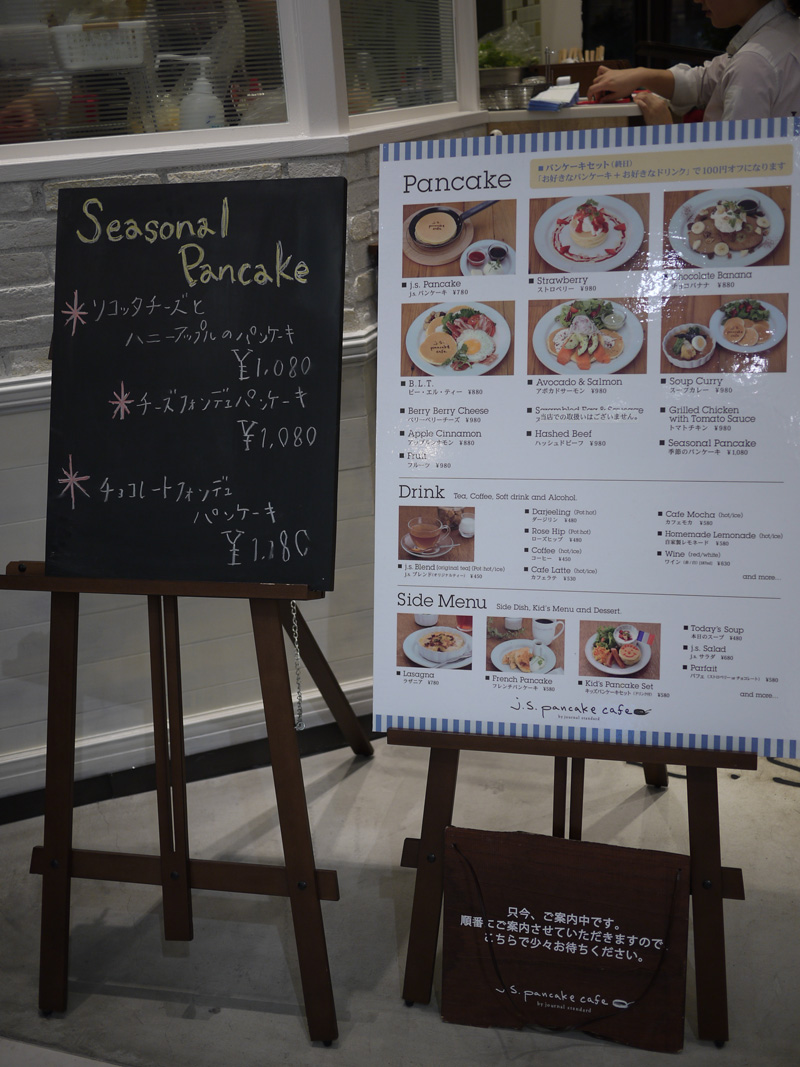 Seasonal
Pancake
リコッタチーズと
ハニーアップルのパンケーキ
¥1,080
チーズフォンデュパンケーキ
¥1,080
チョコレートフォンデュ
パンケーキ
¥1,180
Pancake
■ パンケーキセット(終日)
「お好きなパンケーキ+お好きなドリンク」で100円オフになります
■ j.s. Pancake
j.s. パンケーキ ¥780
■ Strawberry
ストロベリー ¥980
Chocolate Banana
チョコバナナ ¥880
■ B.L.T.
ビー・エル・ティー ¥880
■ Avocado & Salmon
アボカドサーモン ¥980
■ Soup Curry
スープカレー ¥980
■ Berry Berry Cheese
ベリーベリーチーズ ¥980
当店での取扱いはございません。
■ Grilled Chicken
with Tomato Sauce
トマトチキン ¥980
■ Apple Cinnamon
アップルシナモン ¥880
■ Hashed Beef
ハッシュドビーフ ¥980
■ Seasonal Pancake
季節のパンケーキ ¥1,080
■ Fruit
フルーツ ¥980
Drink Tea, Coffee, Soft drink and Alcohol.
■ j.s. Blend (original tea) (Pot hot/ice)
j.s. ブレンド(オリジナルティー) ¥450
■ Darjeeling (Pot hot)
ダージリン ¥480
■ Rose Hip (Pot hot)
ローズヒップ ¥480
■ Coffee (hot/ice)
コーヒー ¥450
■ Cafe Latte (hot/ice)
カフェラテ ¥530
■ Cafe Mocha (hot/ice)
カフェモカ ¥580
■ Homemade Lemonade (hot/ice)
自家製レモネード ¥580
■ Wine (red/white)
ワイン ¥630
and more...
Side Menu Side Dish, Kid's Menu and Dessert.
■ Lasagna
ラザニア ¥780
■ French Pancake
フレンチパンケーキ ¥580
■ Kid's Pancake Set
キッズパンケーキセット ¥580
■ Today's Soup
本日のスープ ¥480
■ j.s. Salad
j.s. サラダ ¥680
■ Parfait
パフェ (ストロベリー or チョコレート) ¥580
and more...
j.s. pancake cafe
by journal standard
只今、ご案内中です。
順番にご案内させていただきますので
こちらで少々お待ちください。
j.s. pancake cafe
by journal standard